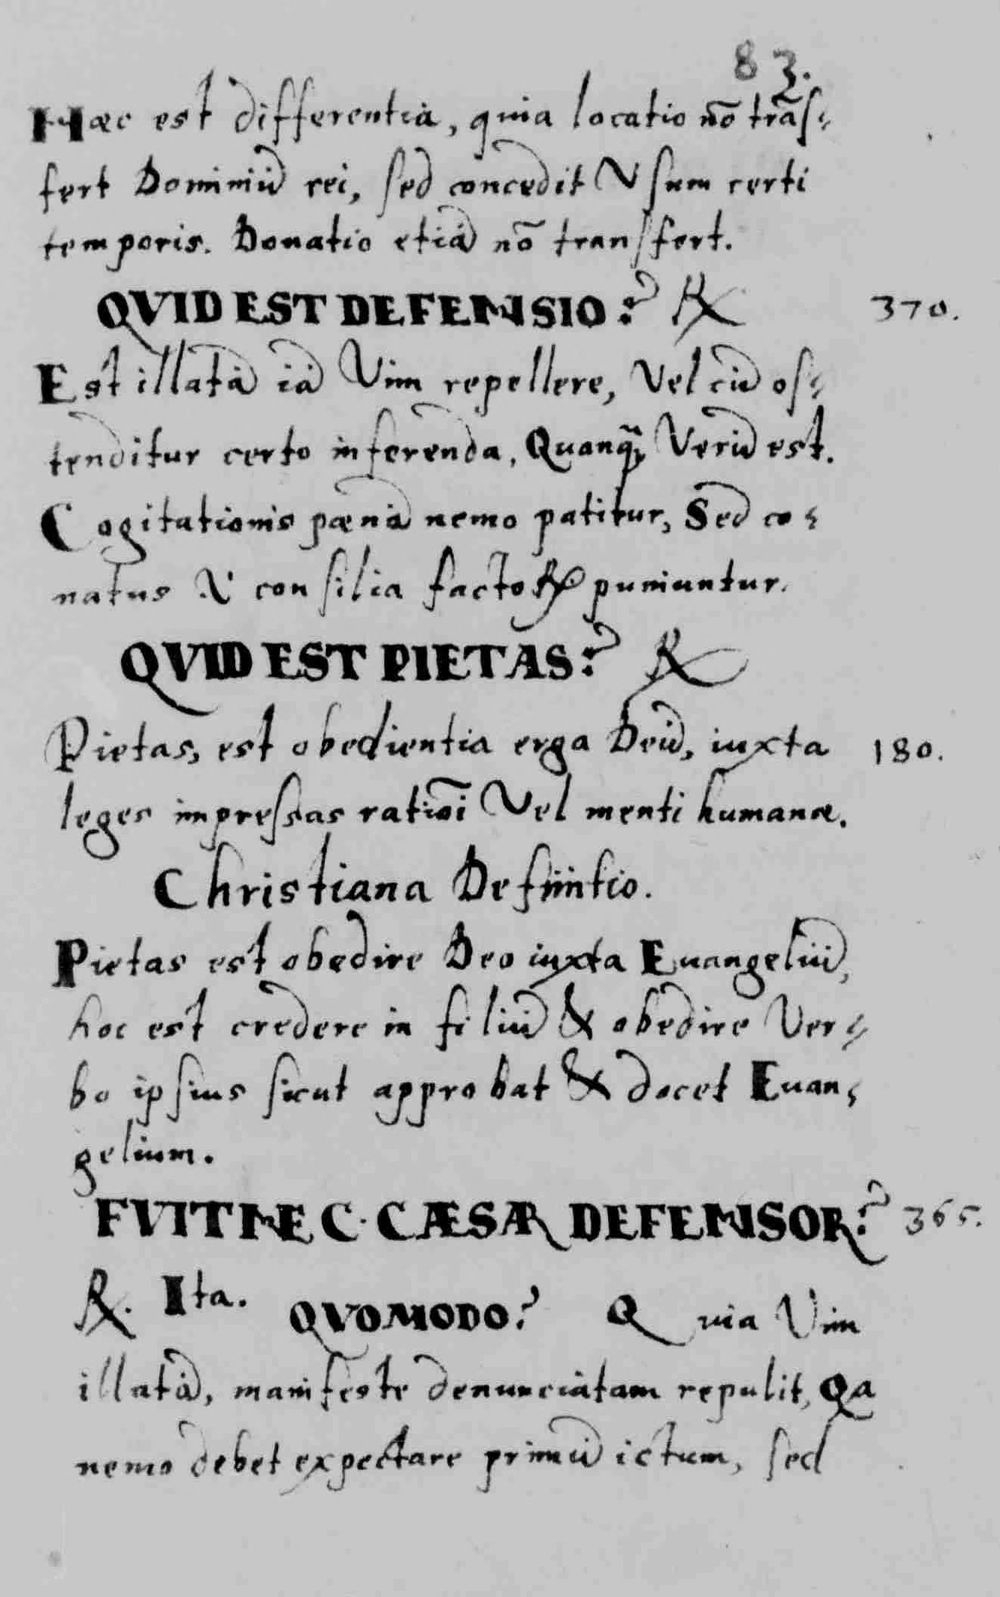 83.
Haec est differentia, quia locatio nō trāsˀ
fert Dominiū rei, sed concedit Vsum certi
temporis. Donatio etiā nō transfert.
QVID EST DEFENSIO? ℞ 370.
Est illatā iā Vim repellere, Vel cū osˀ
tenditur certo inferenda, Quanqꝫ Verū est.
Cogitationis pœnā nemo patitur, Sed coˀ
natus & consilia factoꝝ puniuntur.
QVID EST PIETAS? ℞
Pietas, est obedientia erga Deū, iuxta 180.
leges impressas rationi Vel menti humanæ.
Christiana Definitio.
Pietas est obedire Deo iuxta Euangeliū,
hoc est credere in filiū & obedire Verˀ
bo ipsius sicut approbat & docet Euanˀ
gelium.
FVITNE C. CÆSAR DEFENSOR? 365.
℞. Ita. QVOMODO? Quia Vim
illatā, manifeste denunciatam repulit, Qa
nemo debet expectare primū ictum, sed